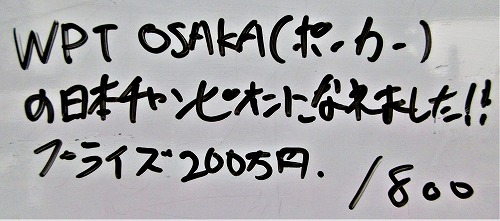 WPT OSAKA(ポーカー)
の日本チャンピオンになれました!!
プライズ200万円.
/800